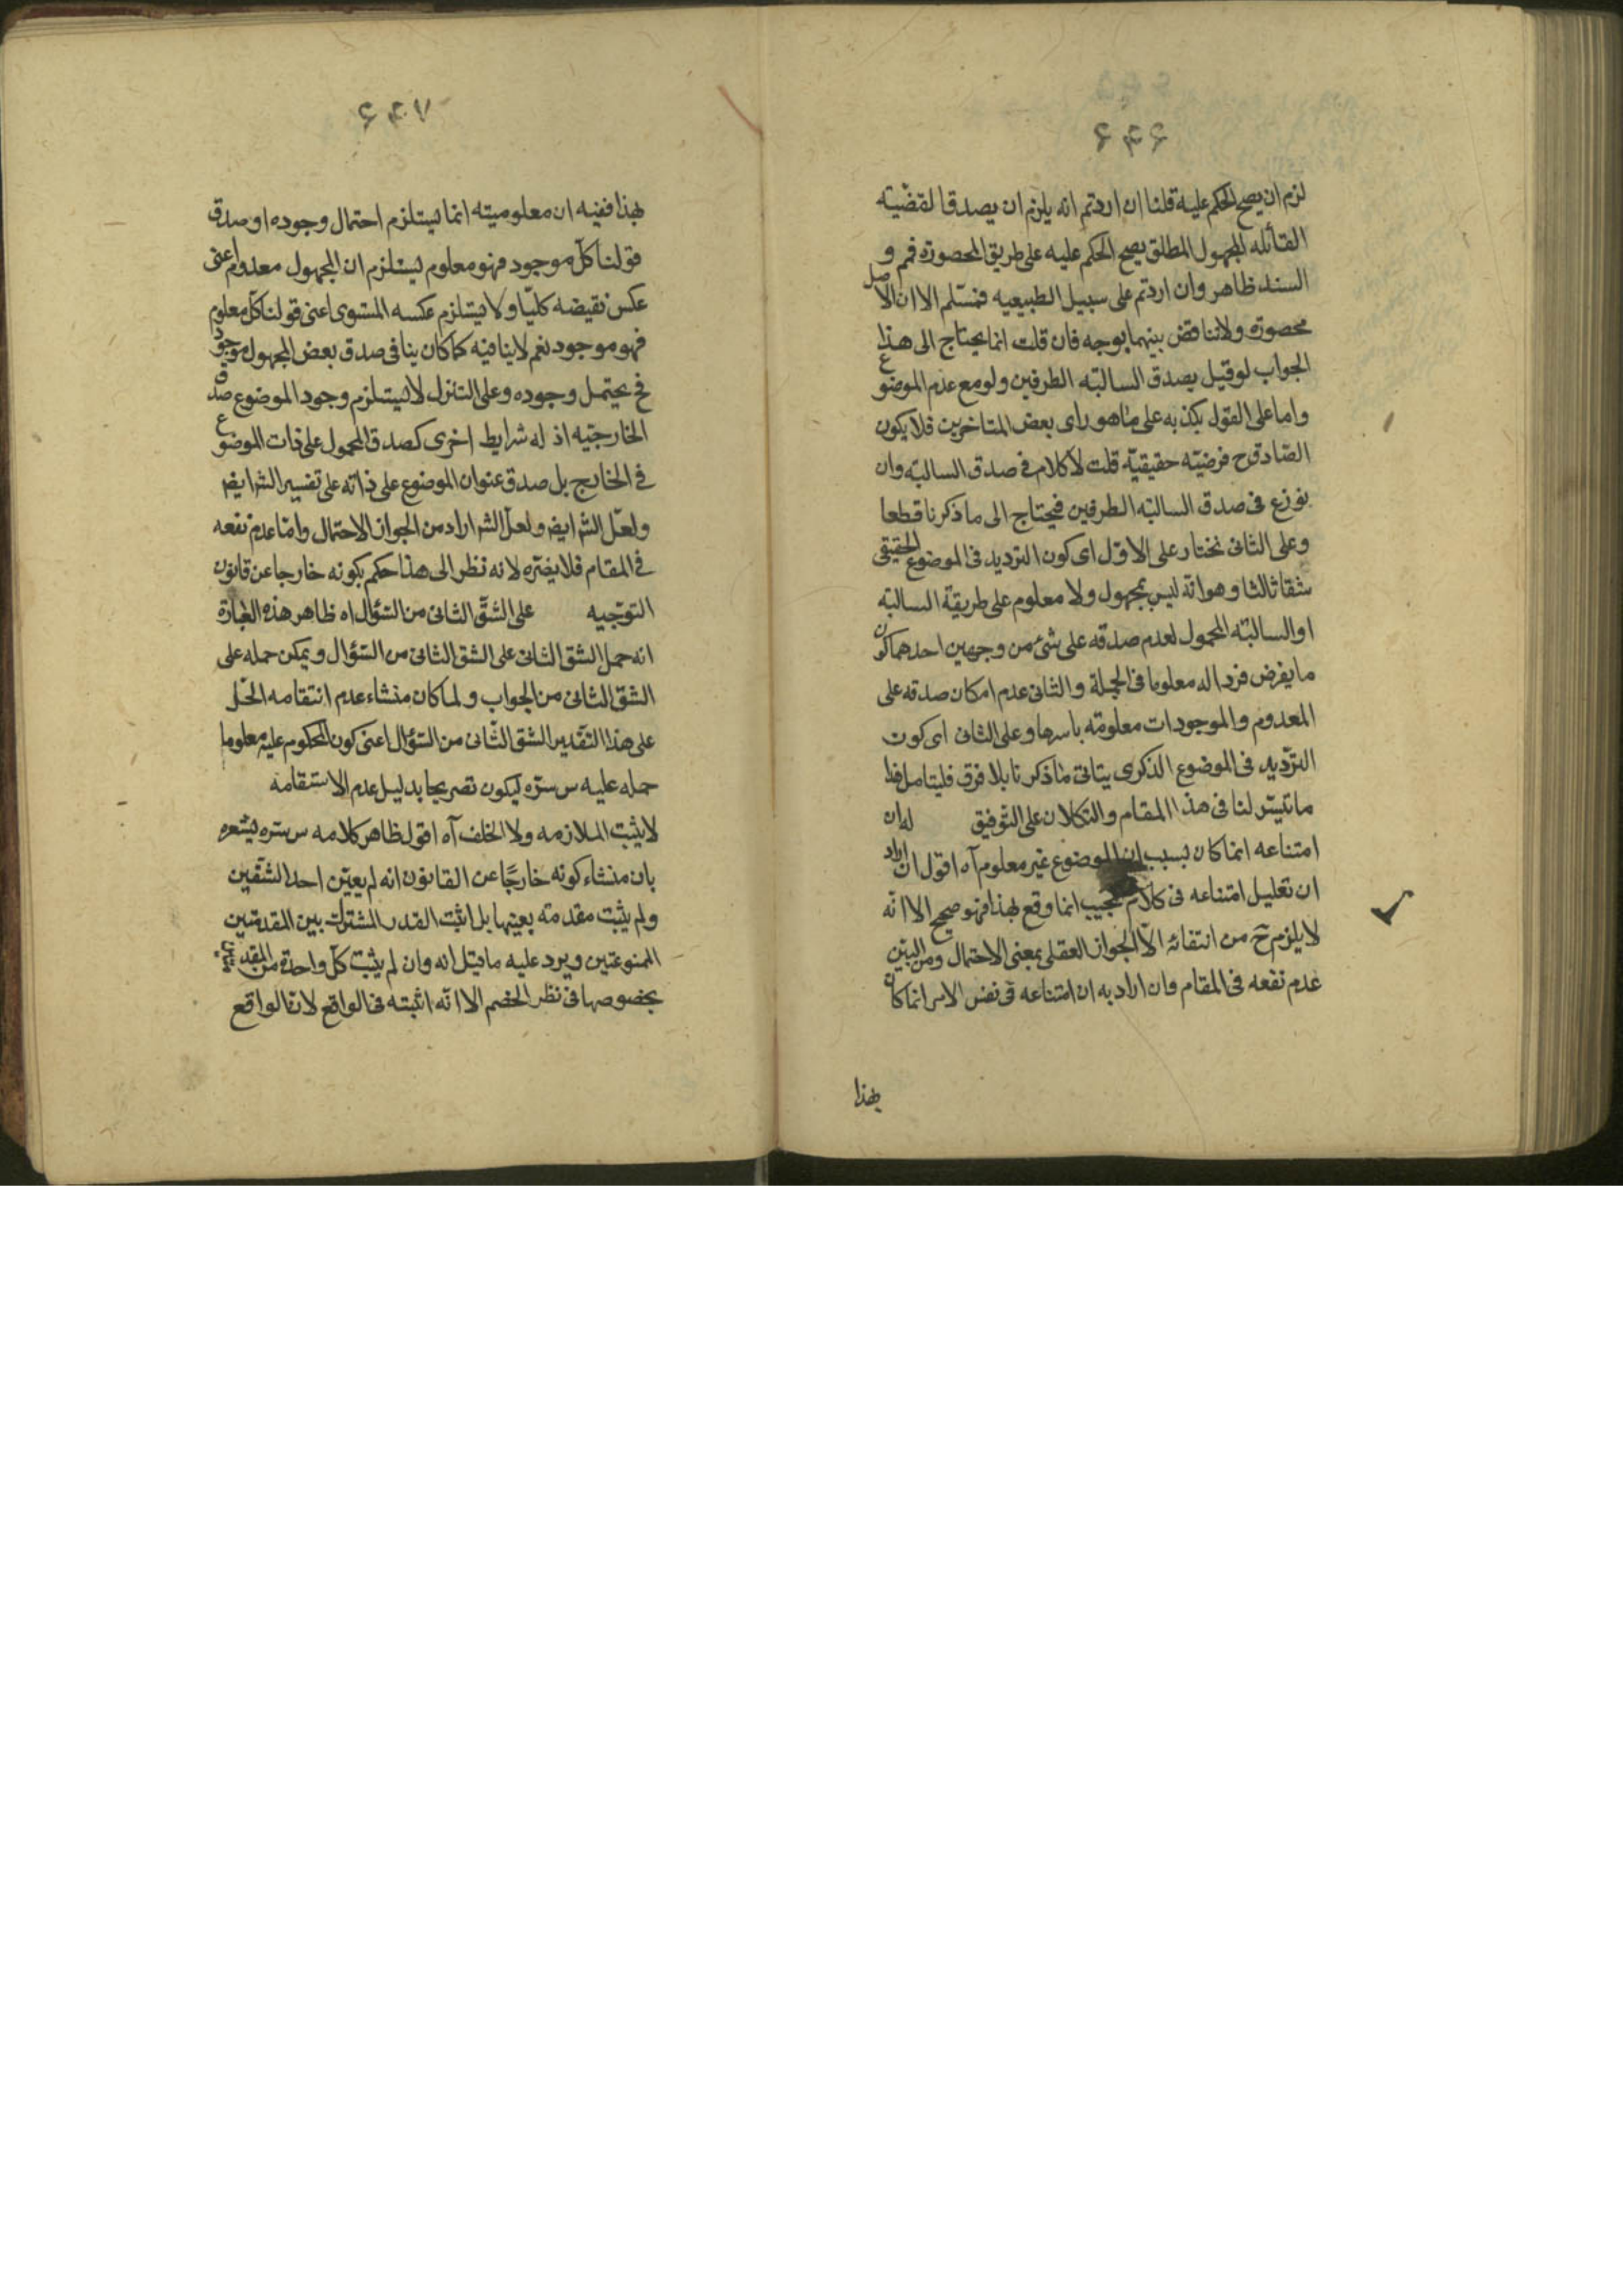 ۶۴۶
لزم ان يصح الحكم عليه قلنا ان اردتم انه يلزم ان يصدق القضيّة
القائله المجهول المطلق يصح الحكم عليه على طريق المحصورة فمم و
السند ظاهر وان اردتم على سبيل الطبيعيه فمسّلم الا ان الاصل
محصورة ولا تناقض بينهما بوجه فان قلت انما يحتاج الى هذا
الجواب لو قيل يصدق السالبة الطرفين ولو مع عدم الموضوع
واما على القول بكذبه على ما هو راى بعض المتاخرين فلا يكون
الصّادق ح فرضيّه حقيقيّة قلت لا كلام فى صدق السالبة وان
نوزع فى صدق السالبة الطرفين فيحتاج الى ما ذكرنا قطعا
وعلى الثانى نختار على الاوّل اى كون الترديد فى الموضوع الحقيقى
شقا ثالثا وهو انّه ليس بمجهول ولا معلوم على طريقة السالبة
او السالبة المحمول لعدم صدقه على شئ من وجهين احدهما كون
ما يفرض فردا له معلوما فى الجملة والثانى عدم امكان صدقه على
المعدوم والموجودات معلومة باسرها وعلى الثانى اى كون
الترّديد فى الموضوع الذكرى يتاتى ما ذكرنا بلا فرق فليتامل هذا
ما تيسّر لنا فى هذا المقام والتكلان على التوفيق له ان
امتناعه انما كان بسبب ان الموضوع غير معلوم آه اقول ان اراد
ان تعليل امتناعه فى كلام المجيب انما وقع بهذا فهو صحيح الا انّه
لا يلزم ح من انتفائه الّا الجواز العقلى بمعنى الاحتمال ومن البيّن
عدم نفعه فى المقام وان اراد به ان امتناعه فى نفس الامر انما كان
بهذا
۶۴۷
بهذا ففيه ان معلوميته انما يستلزم احتمال وجوده او صدق
قولنا كلّ موجود فهو معلوم يستلزم ان المجهول معدوم اعنى
عكس نقيضه كليّا ولا يستلزم عكسه المستوى اعنى قولنا كلّ معلوم
فهو موجود نعم لا ينافيه كما كان ينافى صدق بعض المجهول موجود
فح يحتمل وجوده وعلى التنزل لا يستلزم وجود الموضوع صدق
الخارجيّه اذ له شرايط اخرى كصدق المحمول على ذات الموضوع
فى الخارج بل صدق عنوان الموضوع على ذاته على تفسير الش ايض
ولعلّ الش ايض ولعلّ الش اراد من الجواز الاحتمال وامّا عدم نفعه
فى المقام فلا يضرّه لانه نظر الى هذا حكم بكونه خارجا عن قانون
التوّجيه على الشقّ الثانى من السّؤال اه ظاهر هذه العبارة
انه حمل الشق الثانى على الشق الثانى من السّؤال ويمكن حمله على
الشق الثانى من الجواب ولما كان منشاء عدم انتقامه الحّل
على هذا التقدير الشق الثّانى من السّؤال اعنى كون المحكوم عليه معلوما
حمله عليه س سرّه ليكون تصريحا بدليل عدم الاستقامة
لا يثبت الملازمه ولا الخلف آه اقول ظاهر كلامه س سره يشعر
بان منشاء كونه خارجًا عن القانون انه لم يعيّن احد الشقّين
ولم يثبت مقدمته بعينها بل اثبت القدر المشترك بين المقدمتين
الممنوعتين ويرد عليه ما قيل انه وان لم يثبت كلّ واحدة من المقدمتين
بخصوصها فى نظر الخصم الا انّه اثبته فى الواقع لان الواقع